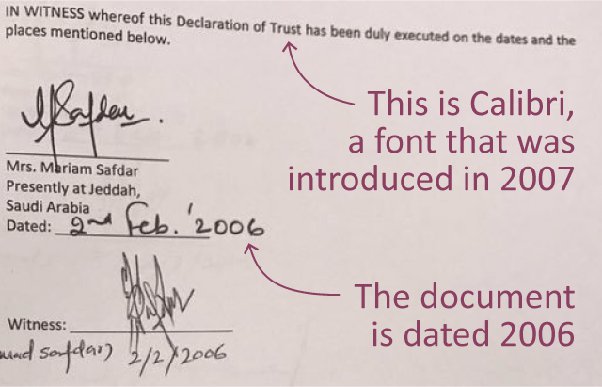 IN WITNESS whereof this Declaration of Trust has been duly executed on the dates and the
places mentioned below.
This is Calibri,
a font that was
introduced in 2007
MSafdar.
Mrs. Mariam Safdar
Presently at Jeddah,
Saudi Arabia
Dated: 2nd Feb. '2006
The document
is dated 2006
Witness:
2/2/2006